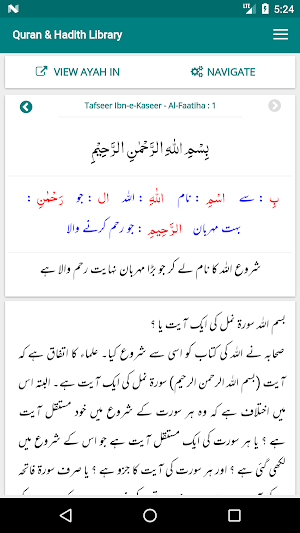 5:24
Quran & Hadith Library
VIEW AYAH IN
NAVIGATE
Tafseer Ibn-e-Kaseer - Al-Faatiha : 1
بِسْمِ اللّٰهِ الرَّحْمٰنِ الرَّحِيْمِ
بِ : سے اسْمِ : نام اللّٰهِ : اللہ ال : جو رَحْمٰنِ :
بہت مہربان الرَّحِيمِ : جو رحم کرنے والا
شروع اللہ کا نام لے کر جو بڑا مہربان نہایت رحم والا ہے
بسم اللہ سورۃ نمل کی ایک آیت یا ؟
صحابہ نے اللہ کی کتاب کو اسی سے شروع کیا۔ علماء کا اتفاق ہے کہ
آیت (بسم اللہ الرحمن الرحیم) سورۃ نمل کی ایک آیت ہے۔ البتہ اس
میں اختلاف ہے کہ وہ ہر سورت کے شروع میں خود مستقل آیت
ہے ؟ یا ہر سورت کی ایک مستقل آیت ہے جو اس کے شروع میں
لکھی گئی ہے ؟ اور ہر سورت کی آیت کا جزو ہے ؟ یا صرف سورۃ فاتحہ